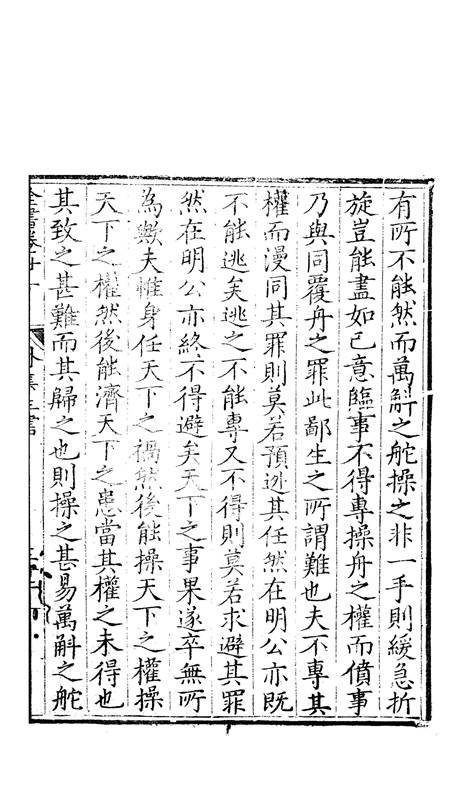 有所不能然而萬斛之舵操之非一手則緩急折
旋豈能盡如己意臨事不得專操舟之權而僨事
乃與同覆舟之罪此鄙生之所謂難也夫不專其
權而漫同其罪則莫若預逃其任然在明公亦既
不能逃矣逃之不能專又不得則莫若求避其罪
然在明公亦終不得避矣天下之事果遂卒無所
為歟夫惟身任天下之禍然後能操天下之權操
天下之權然後能濟天下之患當其權之未得也
其致之甚難而其歸之也則操之甚易萬斛之舵